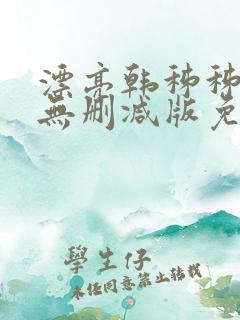 漂亮韩秭秭
無删减版免
學生仔
未任同意禁止转载